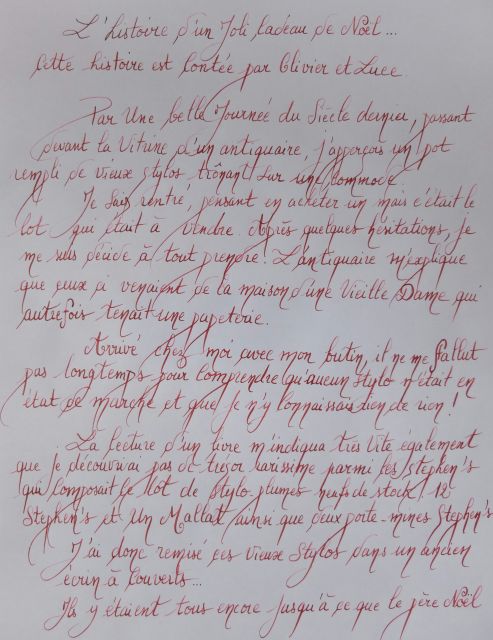 L'histoire d'un Joli Cadeau de Noël...
Cette histoire est Contée par Olivier et Luce.
Par Une belle Journée du Siècle dernier, passant
devant la Vitrine d'un antiquaire, j'apperçois un pot
rempli de vieux stylos trônant sur une commode
Je suis rentré, pensant en acheter un mais c'était le
lot qui était à vendre. Après quelques hésitations, je
me suis décidé à tout prendre! L'antiquaire m'explique
que ceux ci venaient de la maison d'une Vieille Dame qui
autrefois tenait une papeterie.
Arrivé chez moi avec mon butin, il ne me fallut
pas longtemps pour Comprendre qu'aucun Stylo n'était en
état de marche et que Je n'y Connaissais rien de rien!
La lecture d'un livre m'indiqua très Vite également
que je découvrai pas de trésor rarissime parmi les Stephen's
qui Composait le lot de Stylo plumes neufs de stock! 12
Stephen's et Un Mallat ainsi que deux porte-mines Stephen's
J'ai donc remisé ces vieux Stylos dans un ancien
écrin à Couverts...
Ils y étaient tous encore Jusqu'à ce que le père Noël